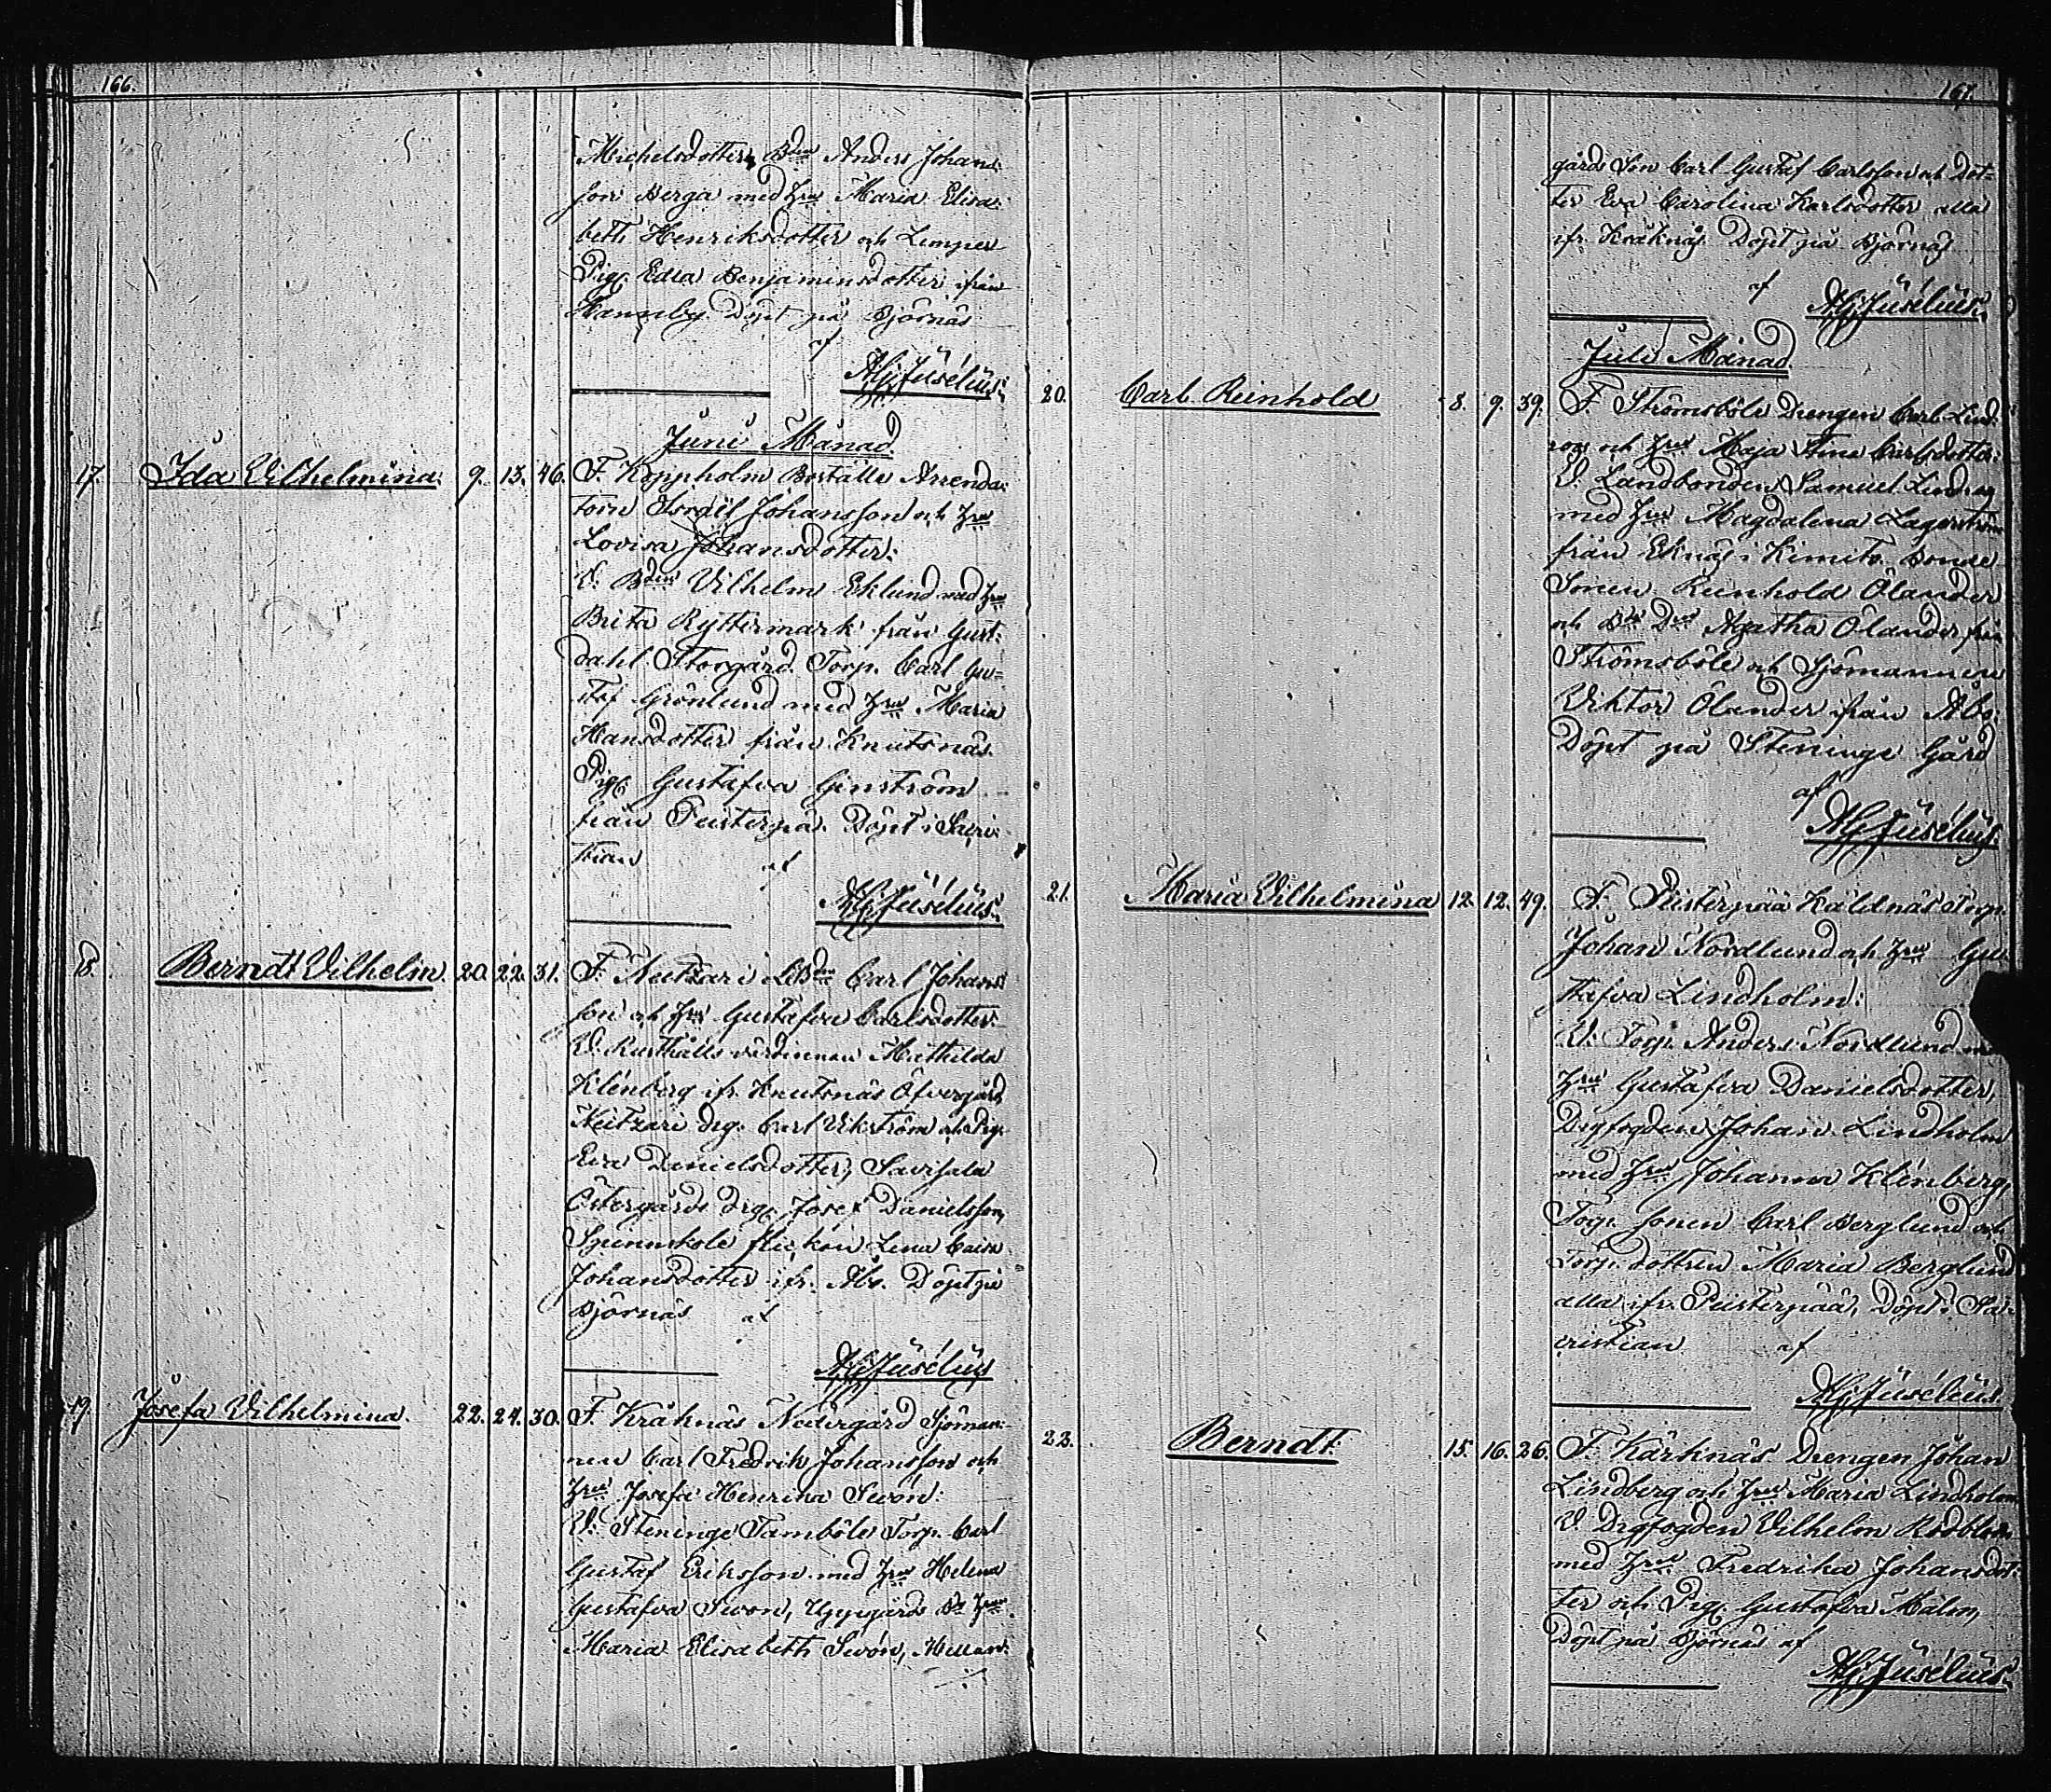 166.
Michelsdotter, Bden Anders Johans-
son Berga med hru Maria Elisa-
beth Henriksdotter och Lemper
Pig. Edla Benjaminsdotter ifrån
Hannby. Döpt på Björnäs
af
AGJusélius.
Juni Månad.
17. Ida Vilhelmina. 9. 13. 46. F. Koppholm Boställs Arrenda-
torn Israël Johansson och hru
Lovisa Johansdotter:
V. Bden Vilhelm Eklund med hru
Brita Ryttermark från Gust-
dahl Storgård. Torp. Carl Gu-
staf Grönlund med hru Maria
Hansdotter från Knutsnäs.
Pig. Gustafva Genström
från Peusterpä. Döpt i Sacri-
stian af
AGJusélius.
18. Berndt Vilhelm. 20. 22. 31. F. Nutzari LBden Carl Johans-
son och hru Gustafva Carlsdotter.
V. Rusthålls värdinnan Mathilda
Klénberg ifr. Knutsnäs Öfvergård,
Neitzari drg. Carl Vikström och Pig.
Eva Danielsdotter, Savisala
Östergårds drg. Josef Danielsson,
Spinnskole flickan Lena Caisa
Johansdotter ifr. Åbo. Döpt på
Björnäs af
AGJusélius
19. Josefa Vilhelmina. 22. 24. 30. F. Kråknäs Nedergård Sjöman-
nen Carl Fredrik Johansson och
hru Josefa Henrika Swón:
V. Steninge Tamböle Torp. Carl
Gustaf Eriksson med hru Helena
Gustafva Swon, Uppgårds Bd hrun
Maria Elisabeth Swón, Mellan-
167.
gårds Son Carl Gustaf Carlsson och Dot-
ter Eva Carolina Karlsdotter alla
ifr. Kråknäs. Döpt på Björnäs
af
AGJusélius.
Juli Månad.
20. Carl Reinhold 8. 9. 39. F. Strömsböle Drengen Carl Lind-
roos och hru Maja Stina Carlsdotter:
V. Landbonden Samuel Lindroos
med hru Magdalena Lagerström
från Eknäs i Kimito. Bonde
Sonen Reinhold Ölander
och Bde Dren Agatha Ölander från
Strömsböle och Sjömannen
Viktor Ölander från Åbo.
Döpt på Steninge Gård
af
AGJusélius.
21. Maria Vilhelmina 12. 12. 49. F. Peusterpää Kaldnäs Torp.
Johan Nordlund och hru Gu-
stafva Lindholm:
V. Torp. Anders Nordlund med
hru Gustafva Danielsdotter,
Drgfogden Johan Lindholm
med hru Johanna Klénberg,
Torp. sonen Carl Berglund och
Torp. dottren Maria Berglund
alla ifr. Peusterpää, Döpt i Sa-
cristian af
AGJusélius
22. Berndt: 15. 16. 26. F. Kärknäs Drengen Johan
Lindberg och hru Maria Lindholm
V. Drgfogden Vilhelm Rödblom
med hru Fredrika Johansdot-
ter och Pig. Gustafva Malm,
Döpt på Björnäs af
AGJusélius.